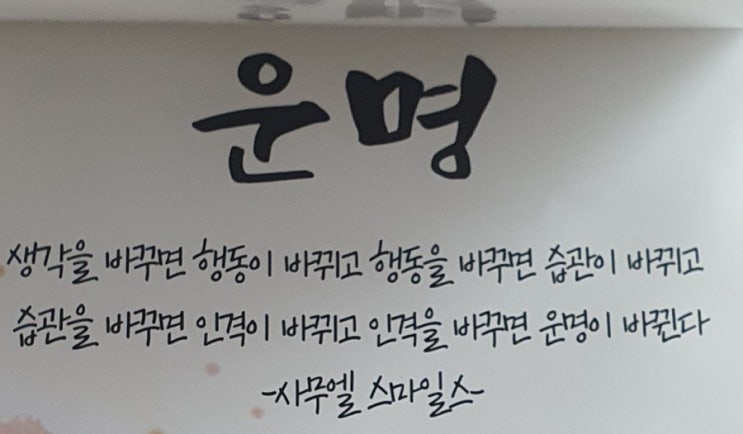 운명
생각을 바꾸면 행동이 바뀌고 행동을 바꾸면 습관이 바뀌고
습관을 바꾸면 인격이 바뀌고 인격을 바꾸면 운명이 바뀐다
-사무엘 스마일스-